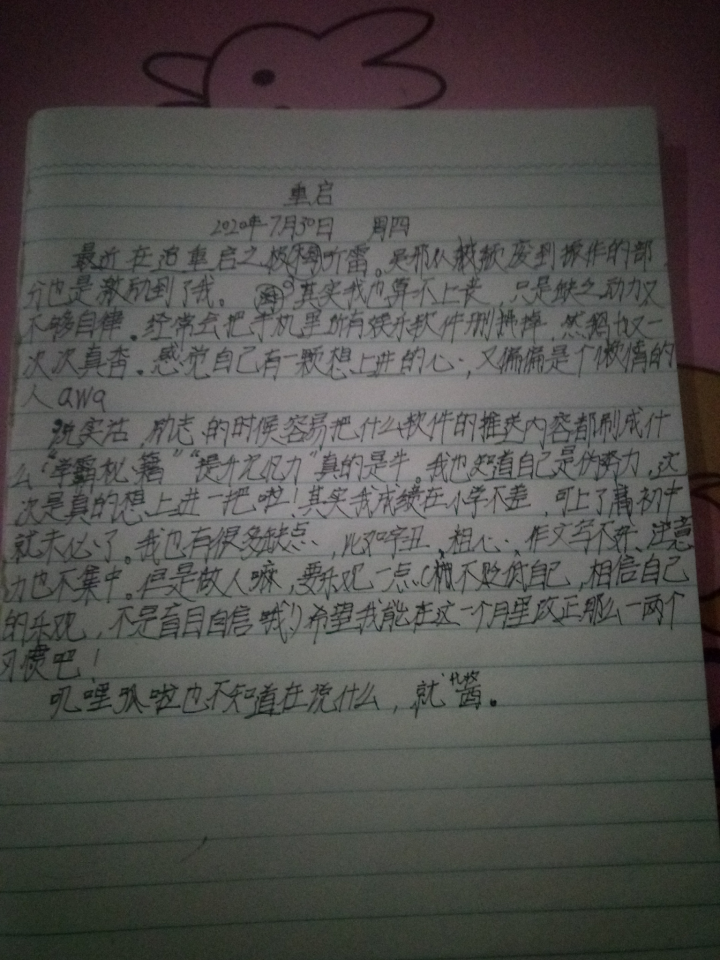 重启
2020年7月30日 周四
最近在追重启之极海听雷。吴邪从被颓废到振作的部
分也是激励到了我。其实我也算不上丧，只是缺乏动力又
不够自律。经常会把手机里所有娱乐软件删掉，然鹅又一
次次真香。感觉自己有一颗想上进的心，又偏偏是个懒惰的
人awa
说实话 励志 的时候容易把什么软件的推送内容都刷成什
么“学霸秘籍”“提升专注力”真的是牛。我也知道自己是伪努力，这
次是真的想上进一把啦！其实我成绩在小学不差，可上了高初中
就未必了。我也有很多缺点，比如字丑、粗心、作文写不好、注意
力也不集中。但是做人嘛，要乐观一点（不贬低自己，相信自己
的乐观，不是盲目自信哦）希望我能在这一个月里改正那么一两个
习惯吧！
叽里呱啦也不知道在说什么，就酱。